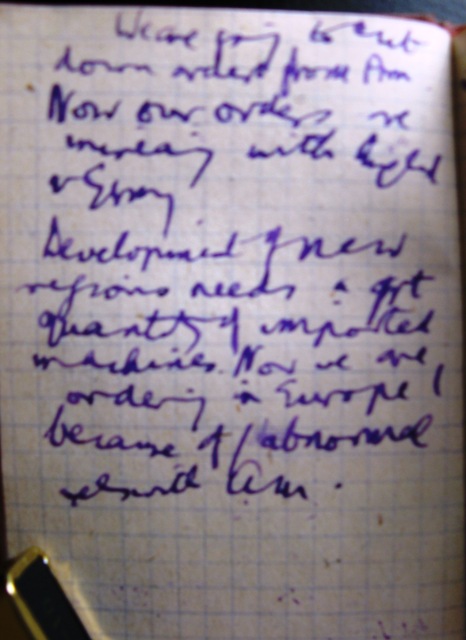 We are going to cut
down orders from Am
Now our orders are
increasing with England
& Germany
Development of new
regions needs a grt
quantity of imported
machines. Now we are
ordering in Europe
because of abnormal
rel with Am.